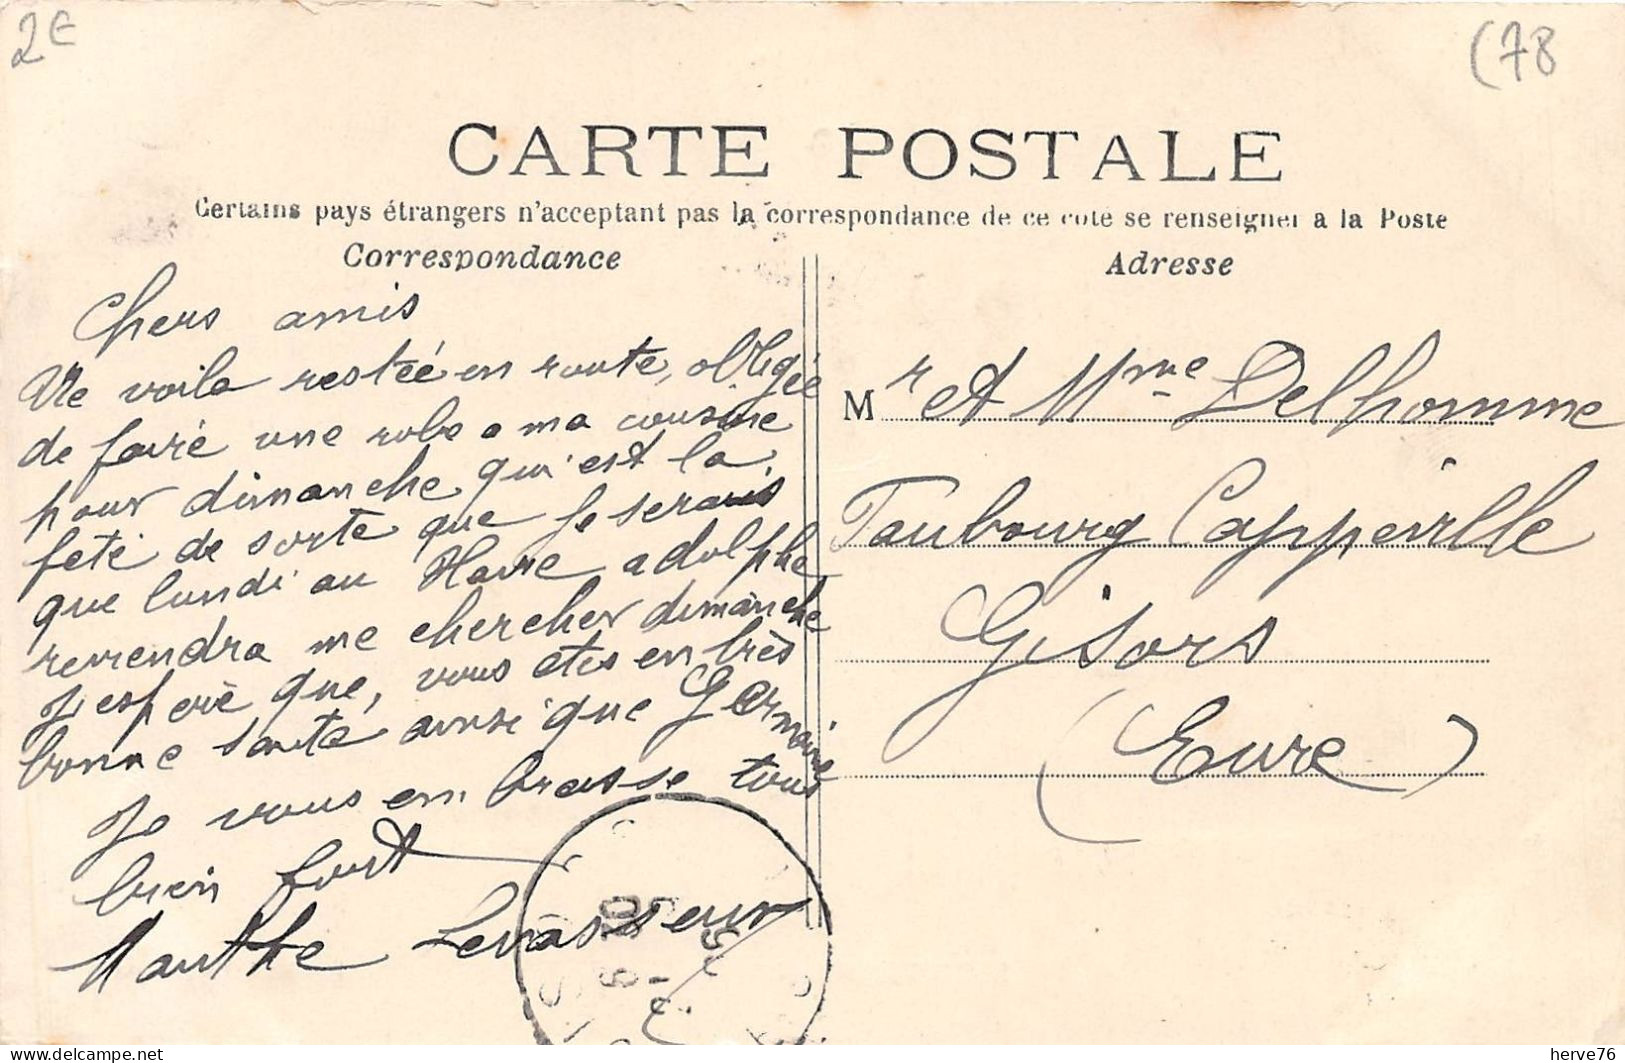 2€
(78
CARTE POSTALE
Certains pays étrangers n'acceptant pas la correspondance de ce coté se renseigner a la Poste
Correspondance
Chers amis
Me voila restée en route, obligée
de faire une robe a ma cousine
pour dimanche qui est la
fete de sorte que je serais
que lundi au Havre adolphe
reviendra me chercher dimanche
j espere que, vous etes en très
bonne santé ainsi que Germaine
Je vous em brasse tous
bien fort
Marthe Levasseur
Adresse
M r et Mme Delhomme
Faubourg Cappeville
Gisors
(Eure)
delcampe.net
herve76